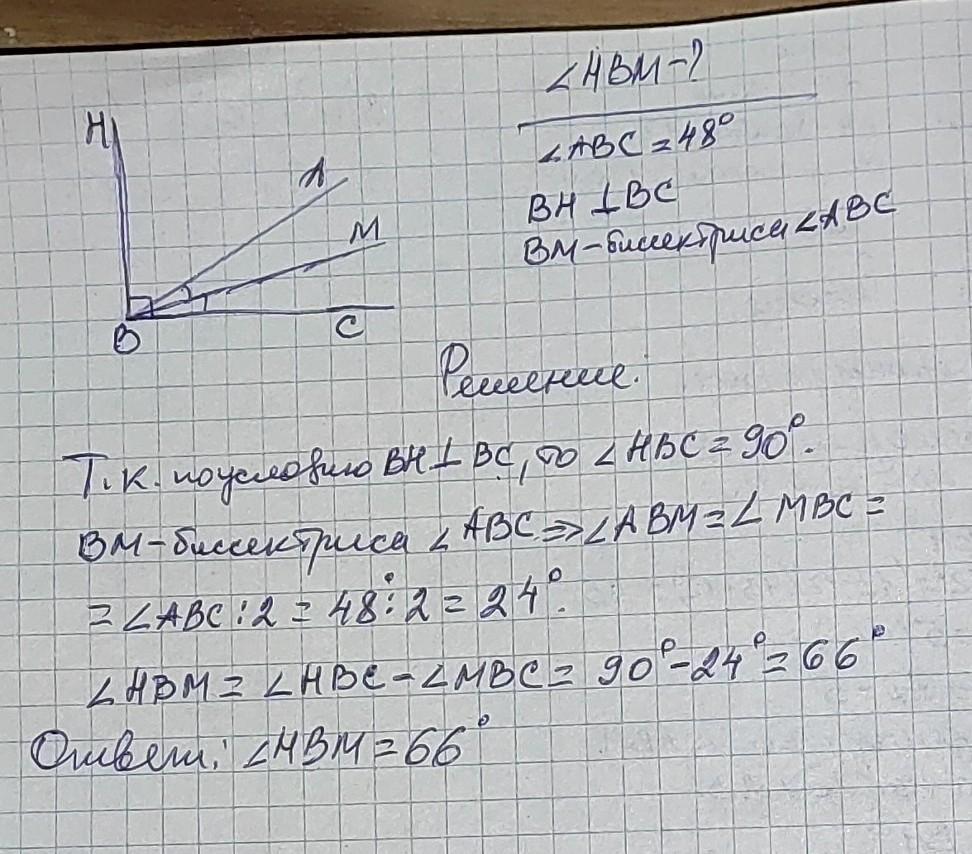 ∠HBM-?
∠ABC=48°
BH⊥BC
BM-биссектриса ∠ABC
H
A
M
B
C
Решение.
Т.к. по условию BH⊥BC, то ∠HBC=90°.
BM-биссектриса ∠ABC⇒∠ABM=∠MBC=
=∠ABC:2=48°:2=24°.
∠HBM=∠HBC-∠MBC=90°-24°=66°
Ответ: ∠HBM=66°